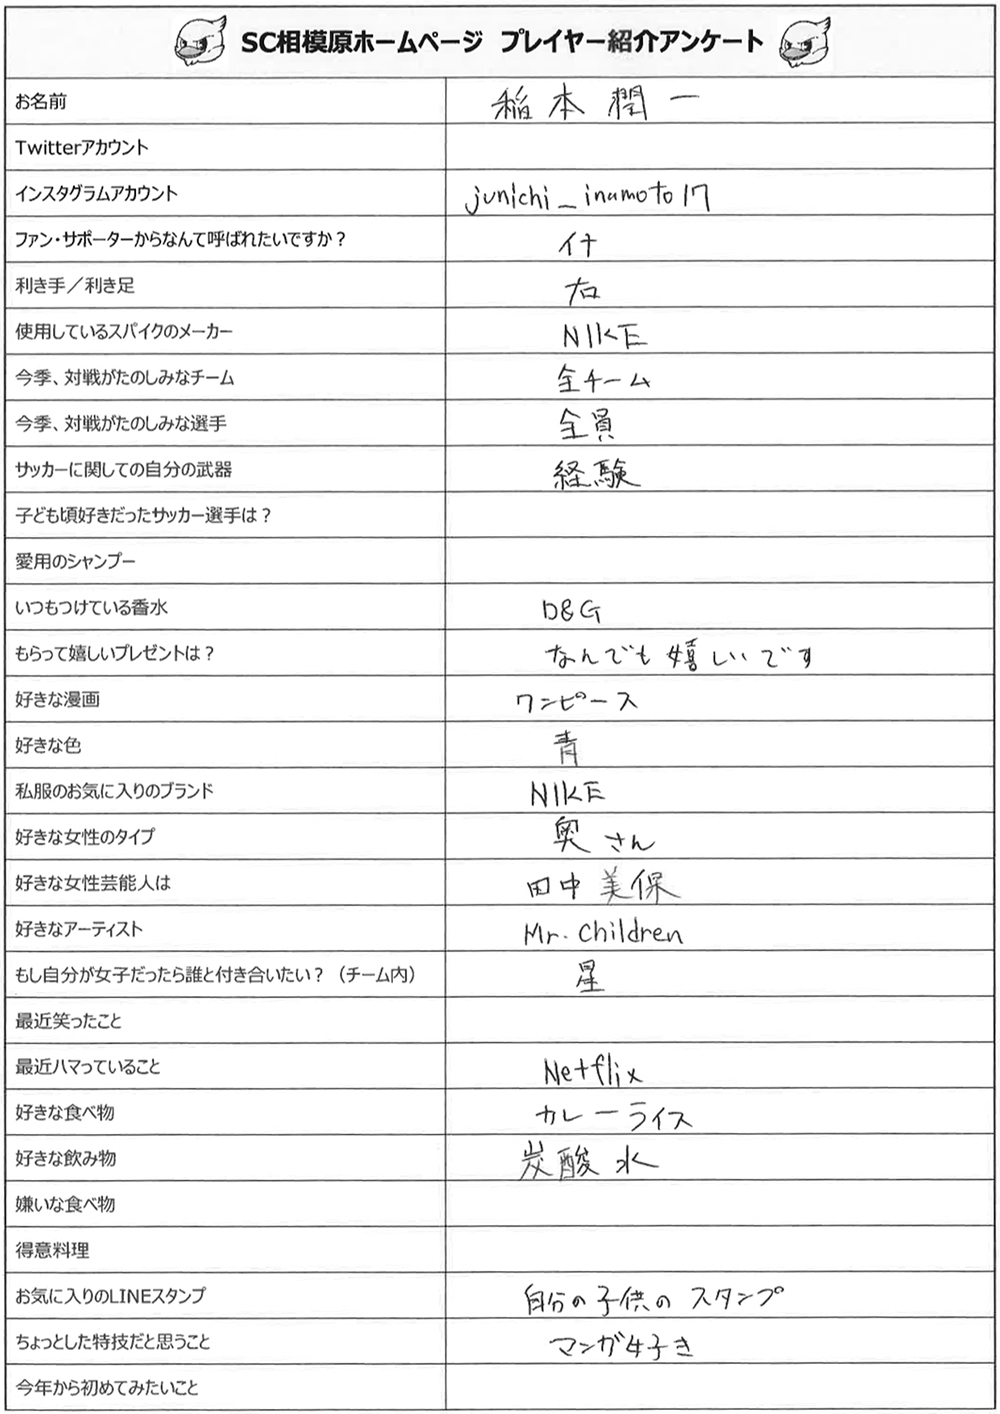 SC相模原ホームページ プレイヤー紹介アンケート
お名前 稲本潤一
Twitterアカウント
インスタグラムアカウント junichi_inamoto17
ファン・サポーターからなんて呼ばれたいですか？ イナ
利き手／利き足 右
使用しているスパイクのメーカー NIKE
今季、対戦がたのしみなチーム 全チーム
今季、対戦がたのしみな選手 全員
サッカーに関しての自分の武器 経験
子ども頃好きだったサッカー選手は？
愛用のシャンプー
いつもつけている香水 D&G
もらって嬉しいプレゼントは？ なんでも嬉しいです
好きな漫画 ワンピース
好きな色 青
私服のお気に入りのブランド NIKE
好きな女性のタイプ 奥さん
好きな女性芸能人は 田中美保
好きなアーティスト Mr. Children
もし自分が女子だったら誰と付き合いたい？（チーム内） 星
最近笑ったこと
最近ハマっていること Netflix
好きな食べ物 カレーライス
好きな飲み物 炭酸水
嫌いな食べ物
得意料理
お気に入りのLINEスタンプ 自分の子供のスタンプ
ちょっとした特技だと思うこと マンガ好き
今年から初めてみたいこと